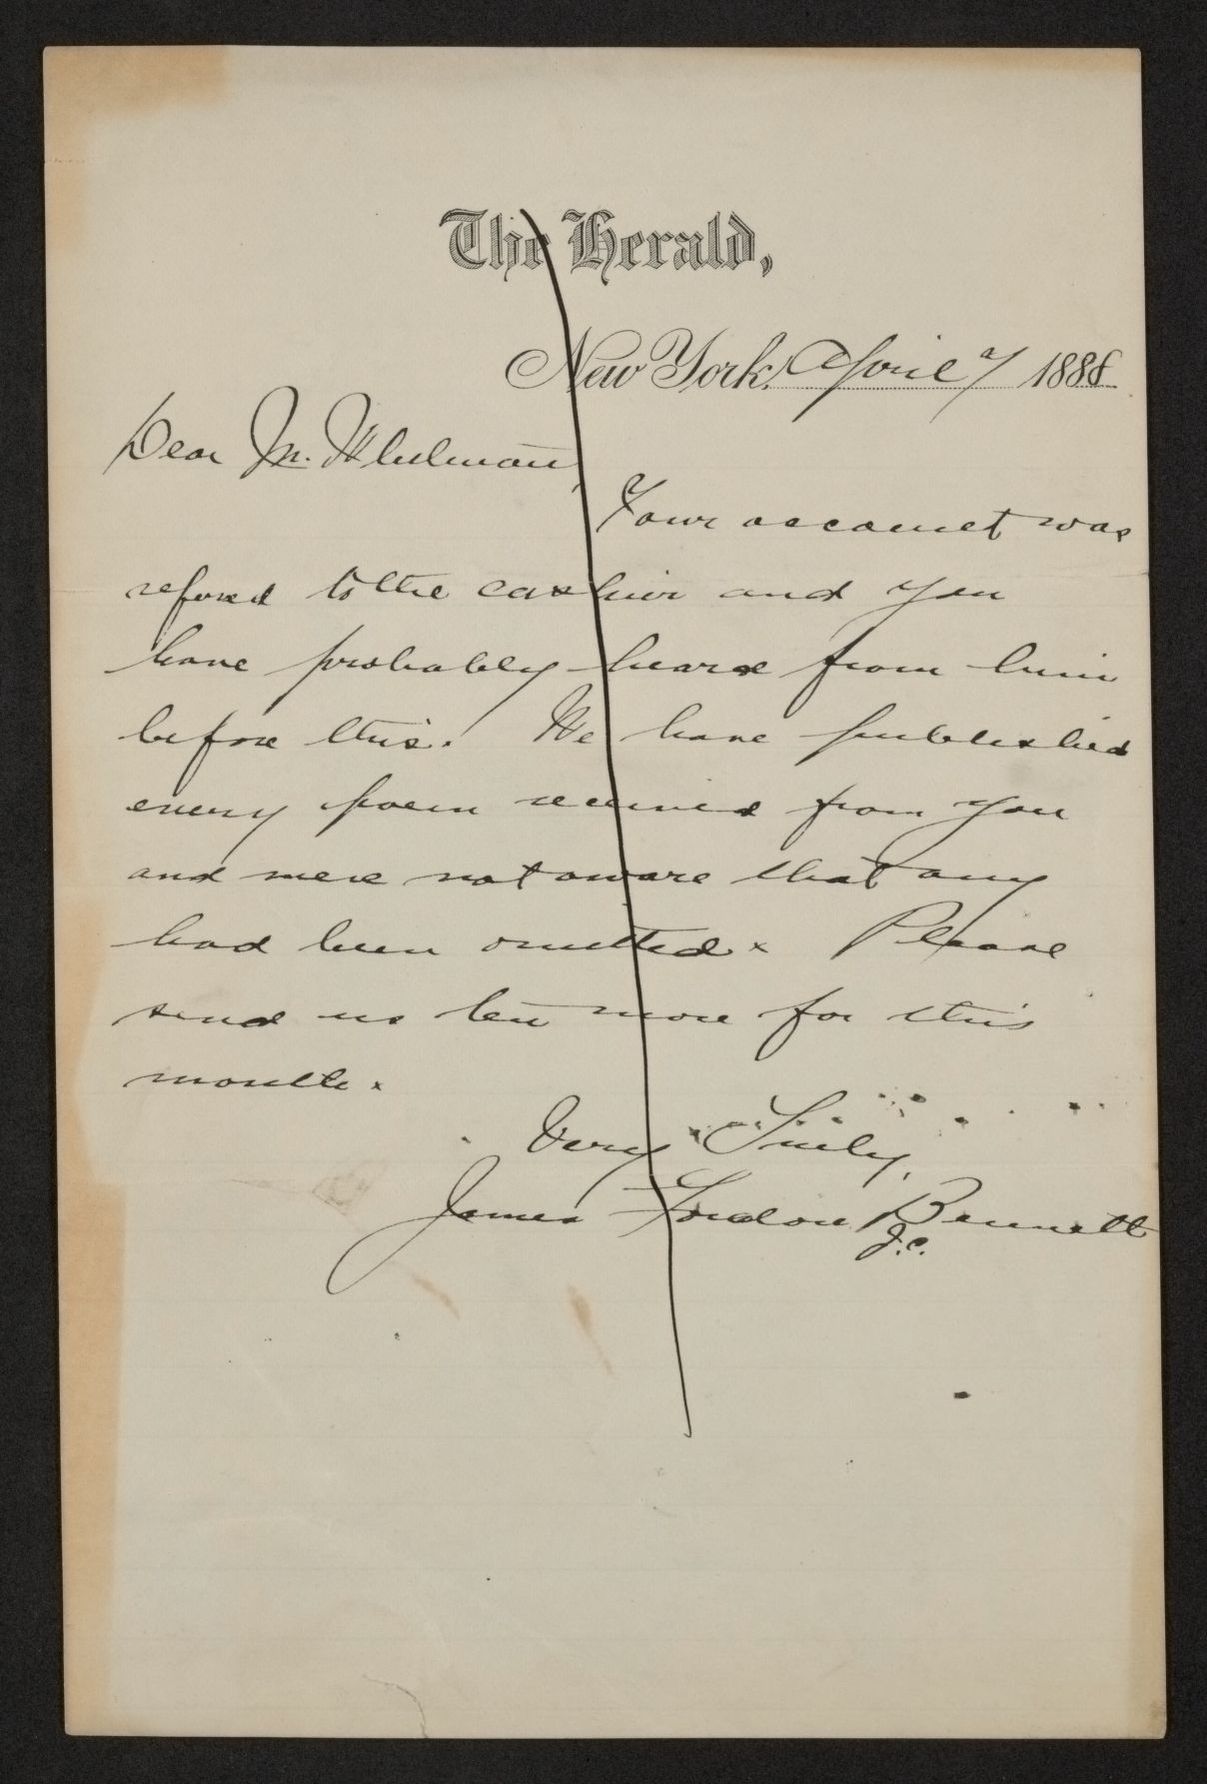 The Herald,
New York, April 7 1888
Dear Mr. Whitman,
Your account was
referred to the cashier and you
have probably heard from him
before this. We have published
every poem received from you
and were not aware that any
had been omitted. Please
send us ten more for this
month.
Very Truly,
James Gordon Bennett